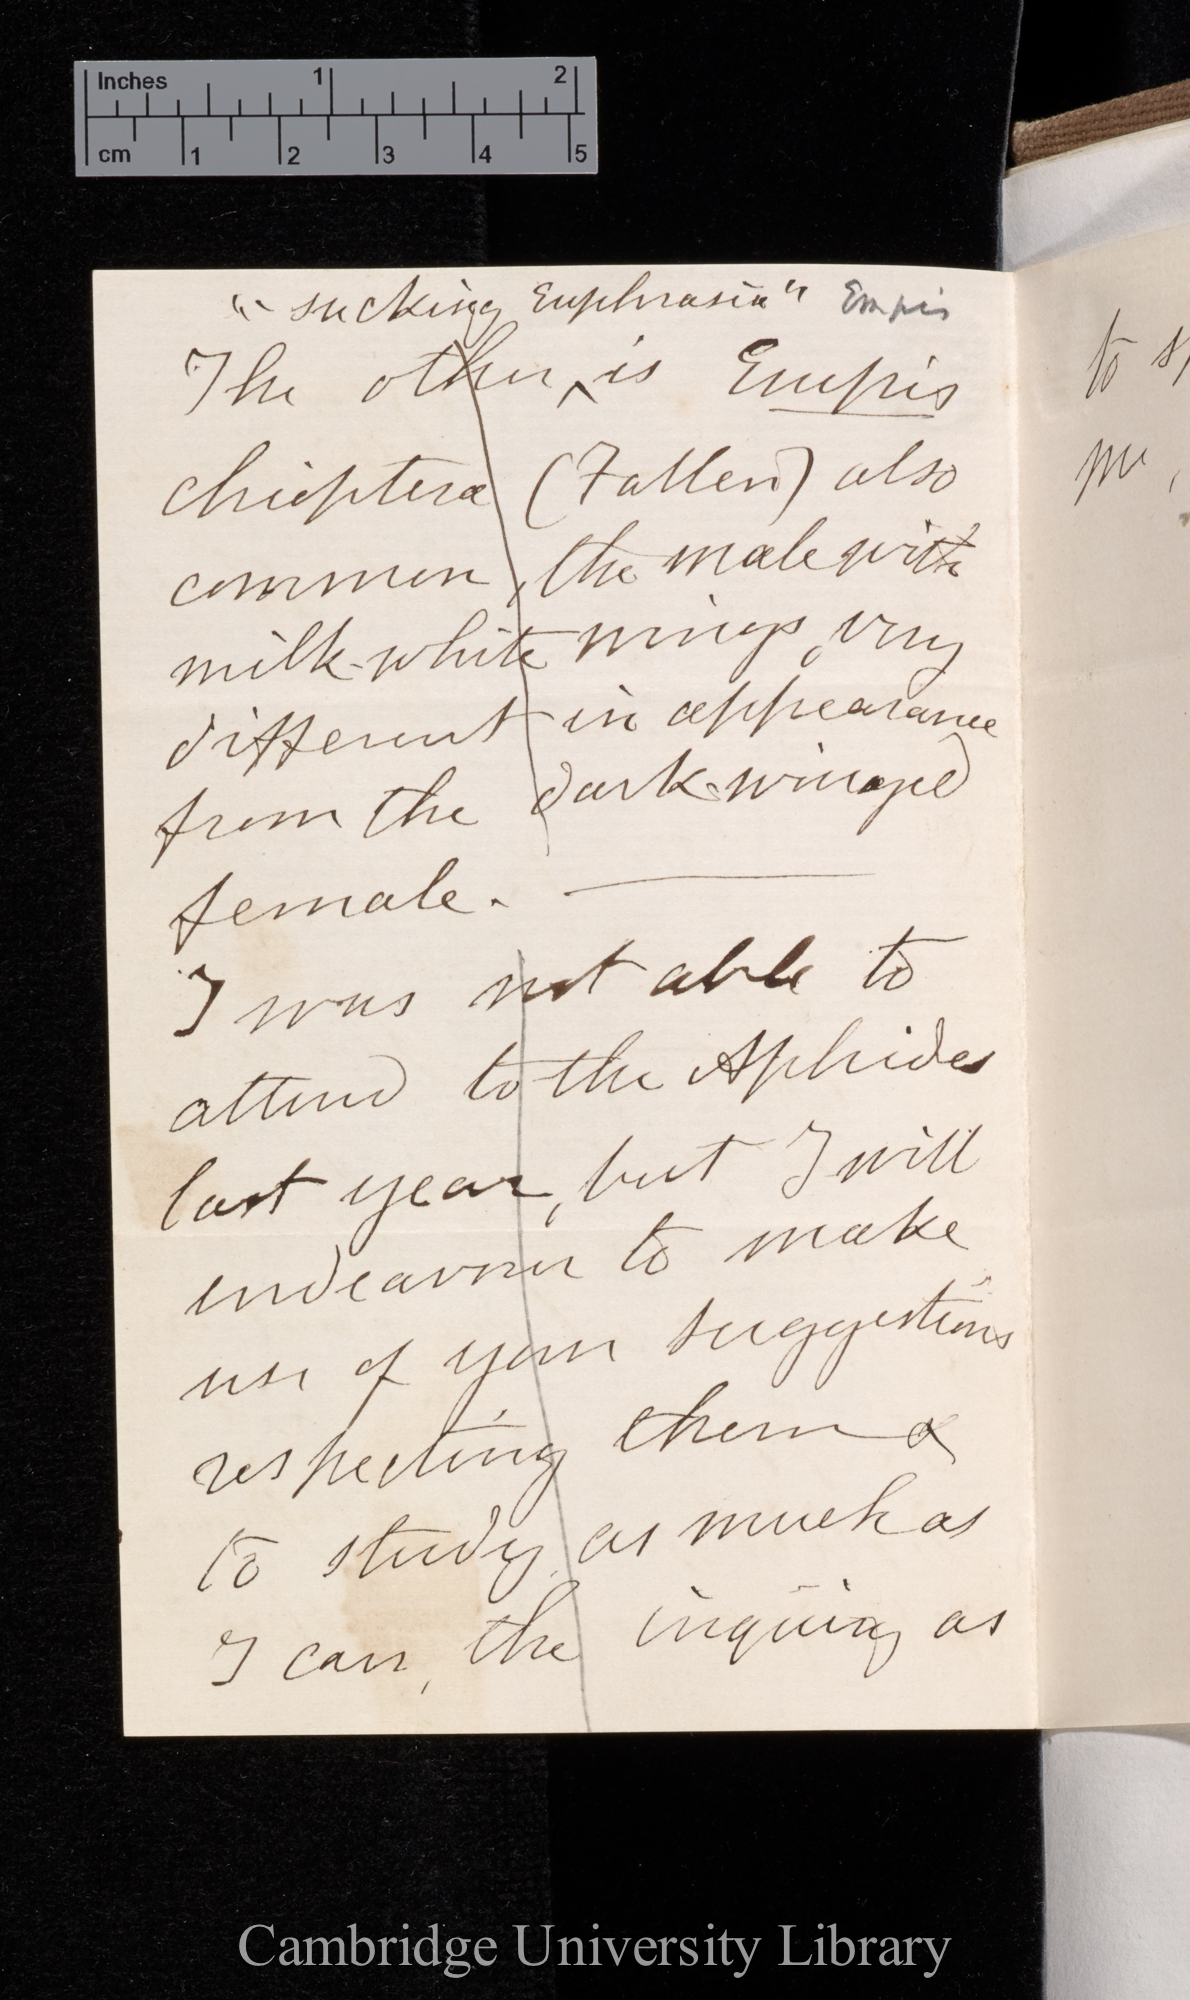 Inches 1 2
cm 1 2 3 4 5
"sucking Euphrasia" Empis
The other ^ is Empis
chioptera (Fallen) also
common, the male with
milk-white wings, very
different in appearance
from the dark-winged
female. —
I was not able to
attend to the Aphides
last year, but I will
endeavour to make
use of your suggestions
respecting them &
to study, as much as
I can, the inquiry as
to
Cambridge University Library